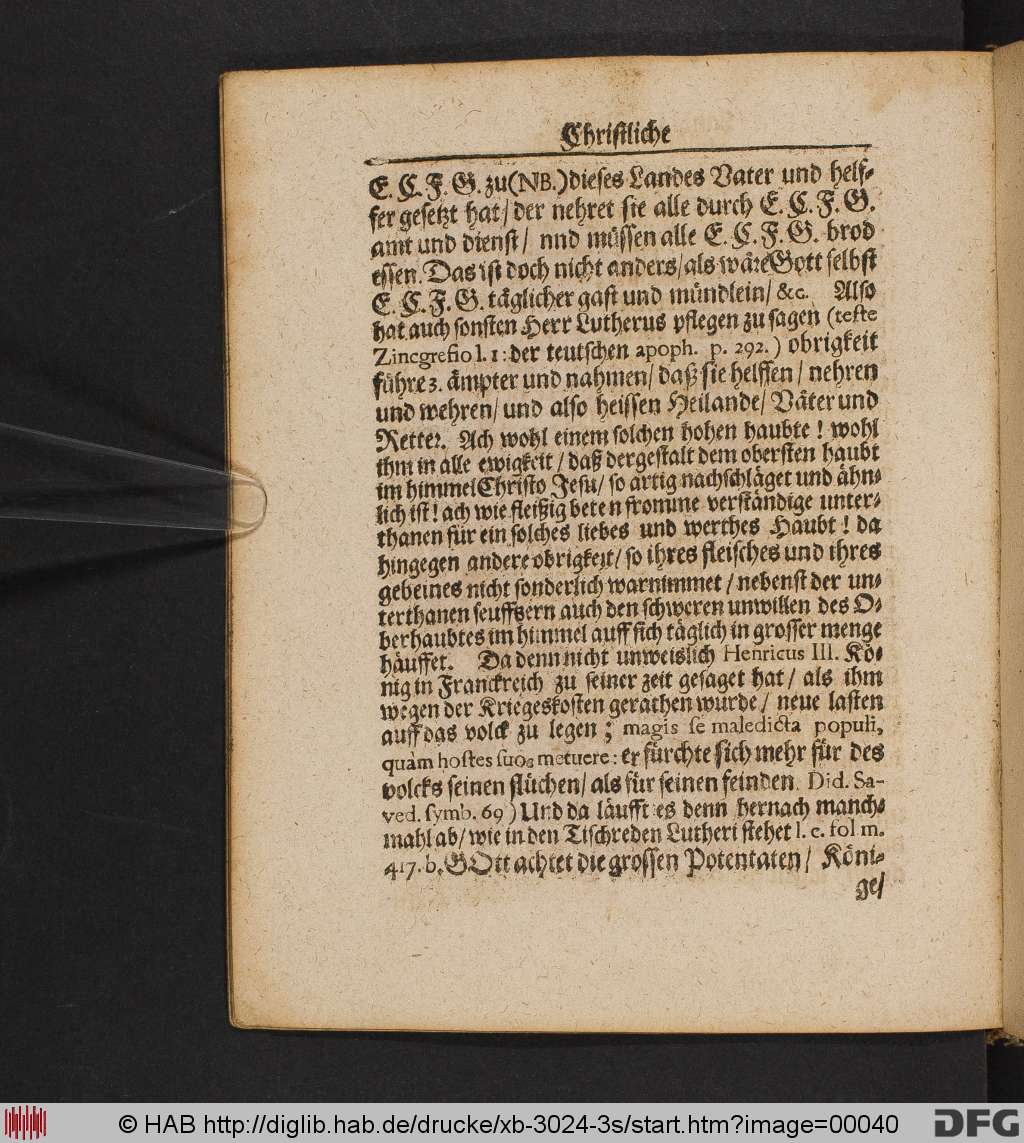 Christliche
E. C. F. G. zu (NB.) dieses Landes Vater und helf-
fer gesetzt hat / der nehret sie alle durch E. C. F. G.
amt und dienst / nnd müssen alle E. C. F. G. brod
essen. Das ist doch nicht anders / als wäre Gott selbst
E. C. F. G. täglicher gast und mündlein / &c. Also
hat auch sonsten Herr Lutherus pflegen zu sagen (teste
Zincgrefio l. 1: der teutschen apoph. p. 292.) obrigkeit
führe 3. ämpter und nahmen / daß sie helffen / nehren
und wehren / und also heissen Heilande / Väter und
Retter. Ach wohl einem solchen hohen haubte ! wohl
ihm in alle ewigkeit / daß dergestalt dem obersten haubt
im himmel Christo Jesu / so artig nachschläget und ähn-
lich ist ! ach wie fleißig beten fromme verständige unter-
thanen für ein solches liebes und werthes Haubt ! da
hingegen andere obrigkeit / so ihres fleisches und ihres
gebeines nicht sonderlich warnimmet / nebenst der un-
terthanen seufftzern auch den schweren unwillen des O-
berhaubtes im himmel auff sich täglich in grosser menge
häuffet. Da denn nicht unweislich Henricus III. Kö-
nig in Franckreich zu seiner zeit gesaget hat / als ihm
wegen der Kriegeskosten gerathen wurde / neue lasten
auff das volck zu legen ; magis se maledicta populi,
quàm hostes suos metuere : er fürchte sich mehr für des
volcks seinen flüchen / als für seinen feinden. Did. Sa-
ved. symb. 69 ) Und da läufft es denn hernach manch-
mahl ab / wie in den Tischreden Lutheri stehet l. c. fol m.
417. b. GOtt achtet die grossen Potentaten / Köni-
ge /
© HAB http://diglib.hab.de/drucke/xb-3024-3s/start.htm?image=00040
DFG